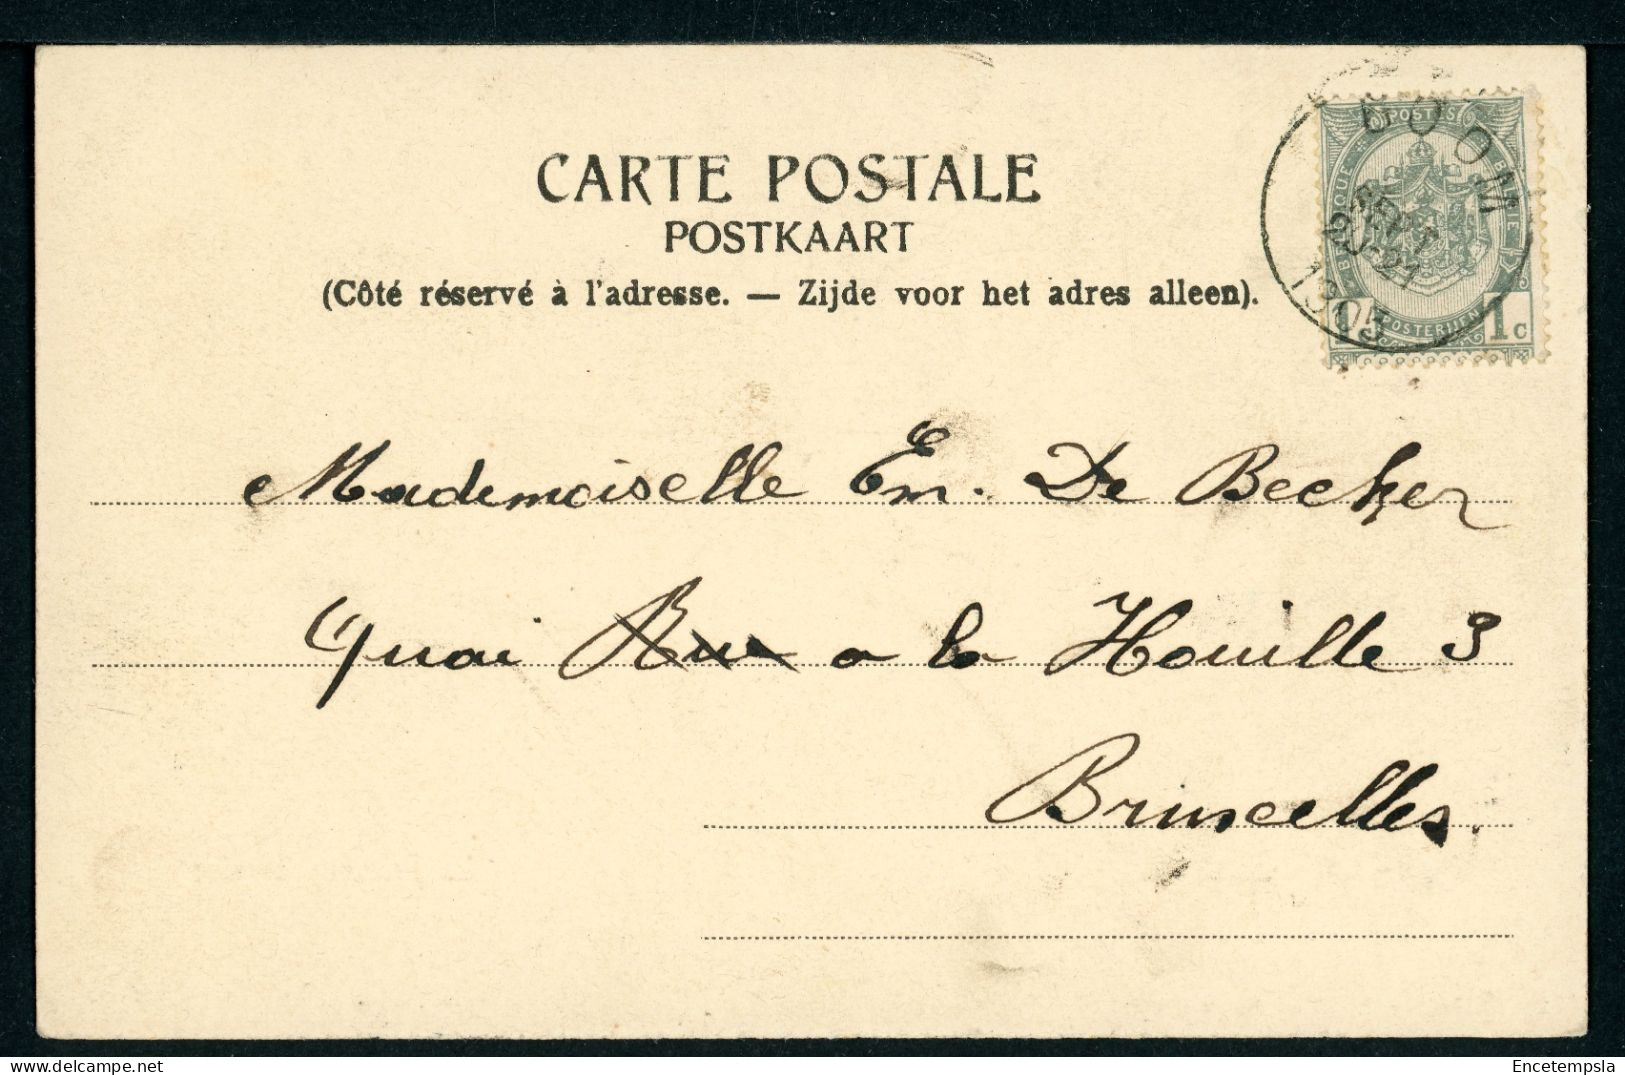 CARTE POSTALE
POSTKAART
(Côté réservé à l'adresse. — Zijde voor het adres alleen).
BOOM
SEPT
20-21
1905
POSTES
BELGIQUE
BELGIE
POSTERIJEN
1 1c
Mademoiselle Em. De Becker
Quai Rue a la Houille 3
Bruxelles.
Encetempsla